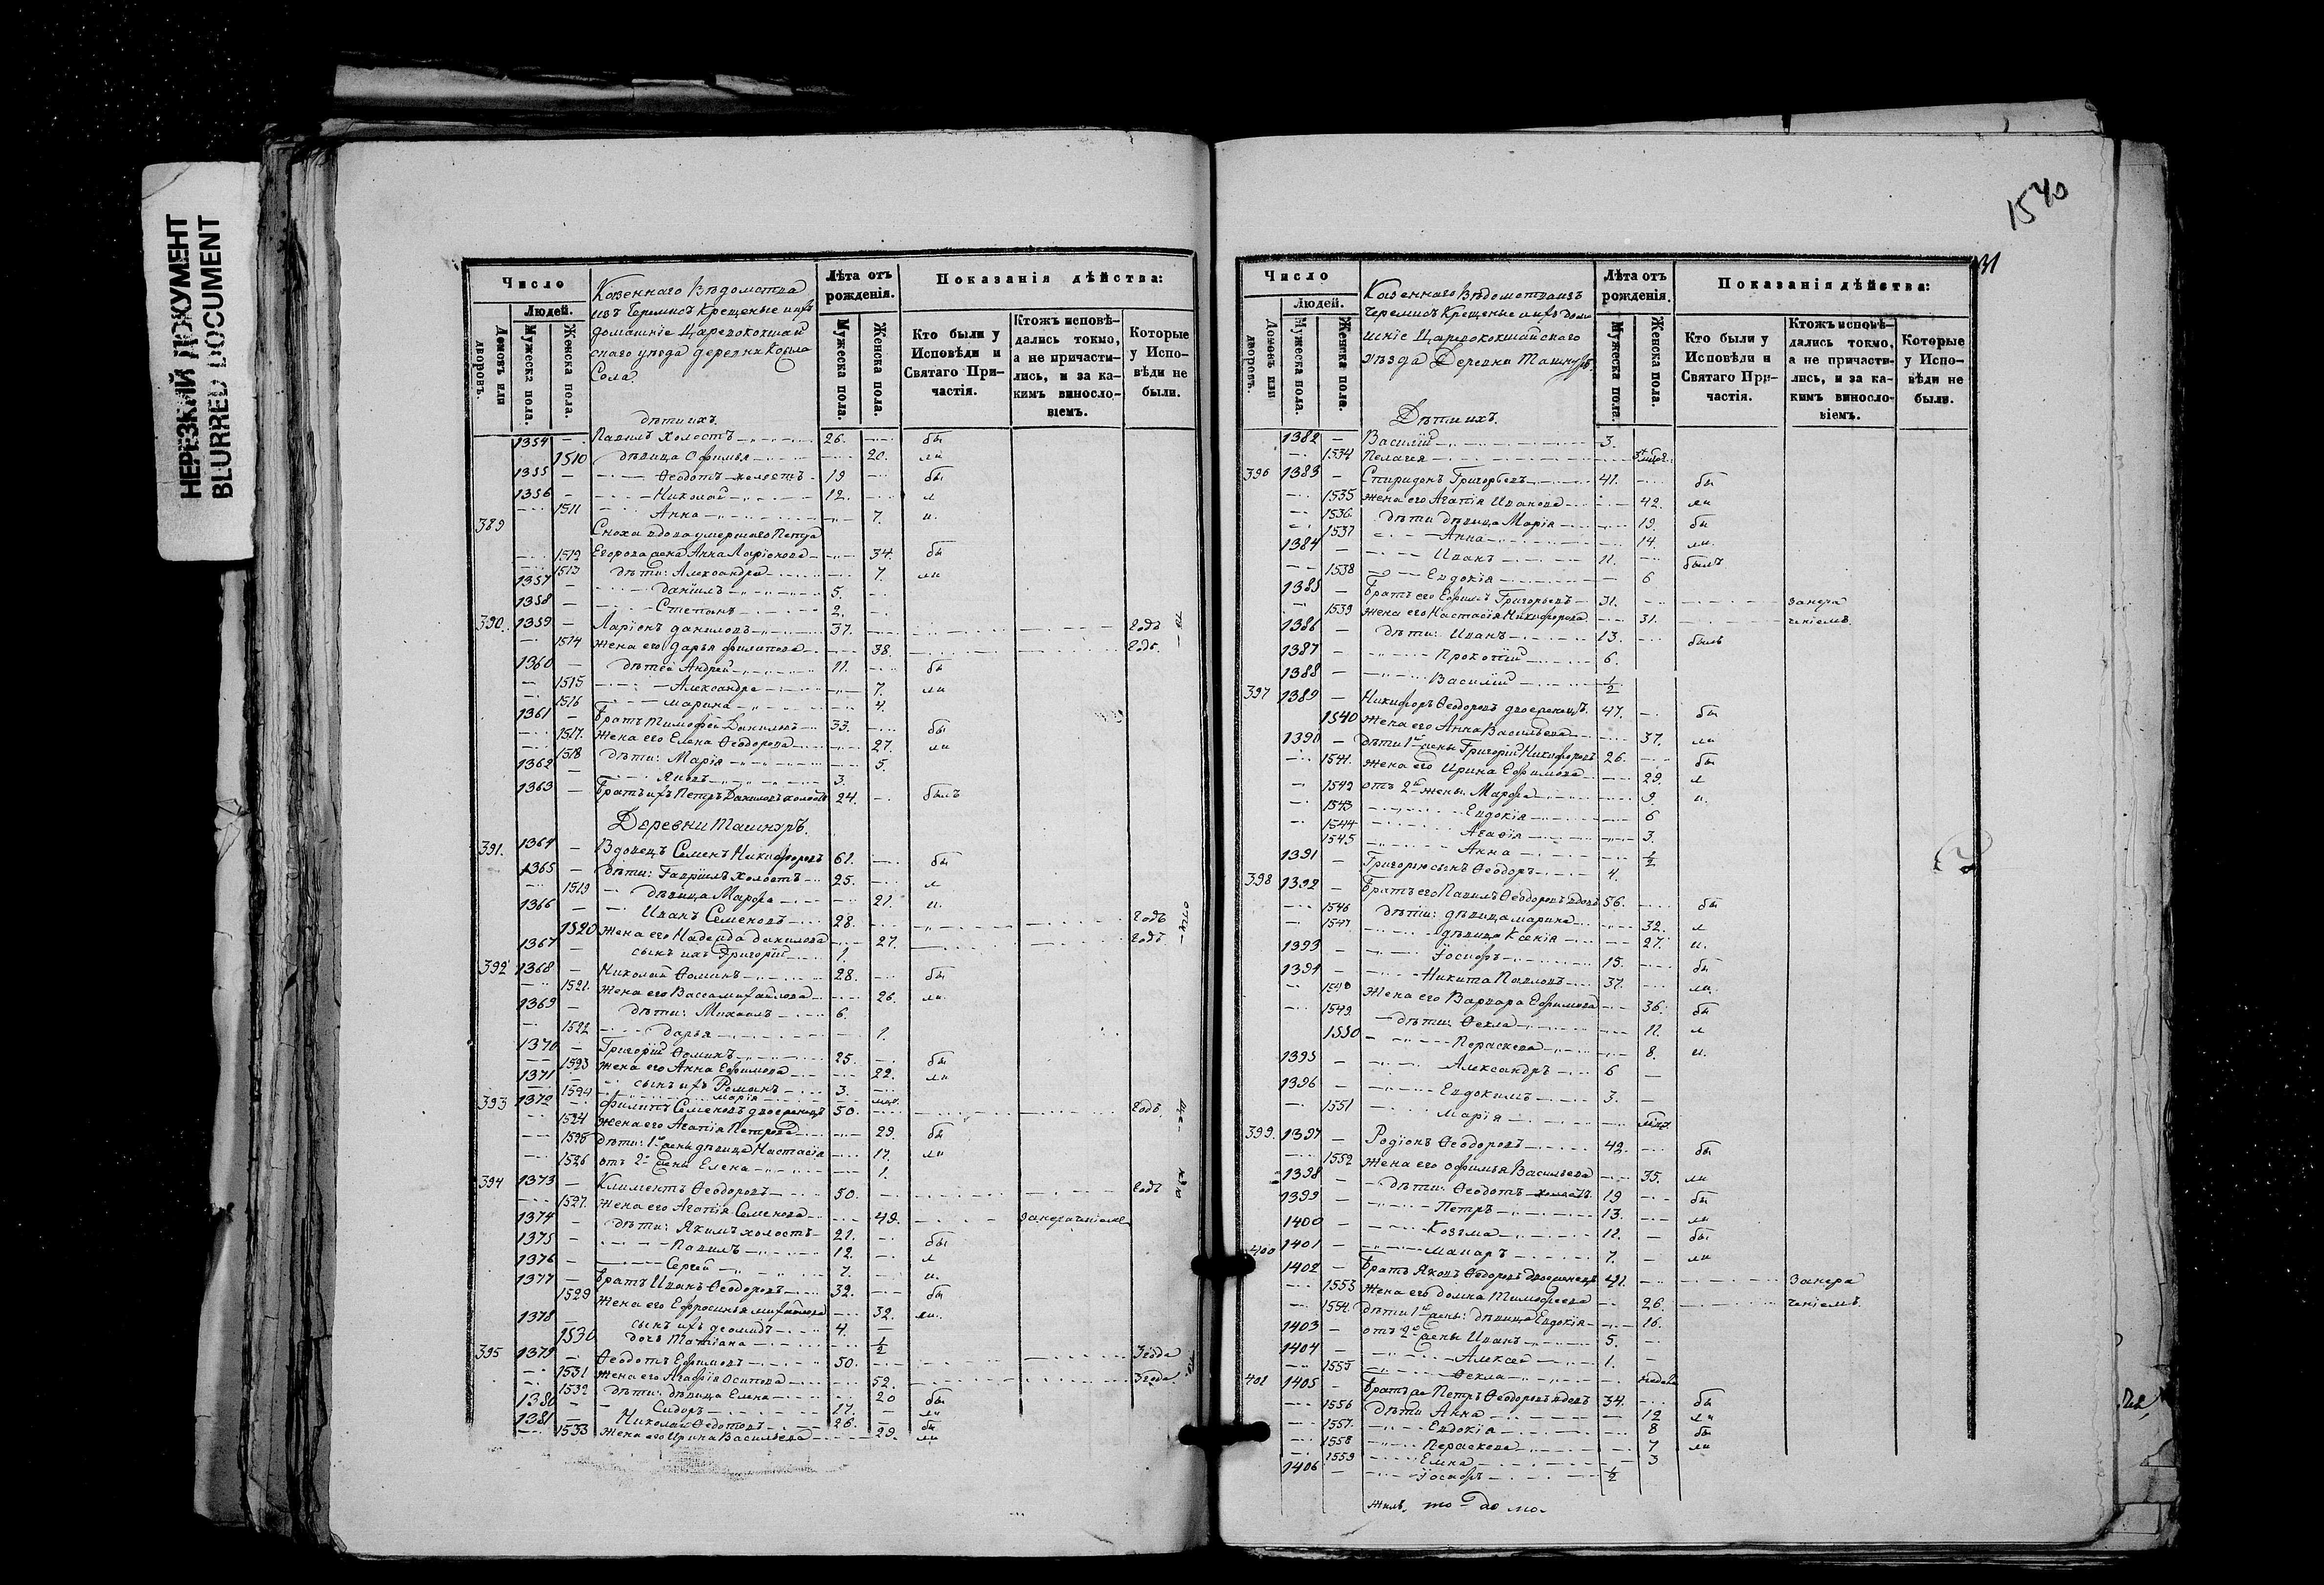 НЕРЕЗКИЙ ДОКУМЕНТ
BLURRED DOCUMENT
Число
Людей.
Домовъ или дворовъ.
Мужеска пола.
Женска пола.
Казеннаго Вѣдомства
изъ Черемисъ Крещеные и ихъ
домашніе Царевококшай
скаго уѣзда деревни
Сола.
Лѣта отъ рожденія.
Мужеска пола.
Женска пола.
Показанія дѣйства:
Кто были у Исповѣди и Святаго Причастія.
Ктожъ исповѣдались токмо, а не причастились, и за какимъ винословіемъ.
Которые у Исповѣди не были.
дѣти ихъ.
1354 — Павилъ холостъ 26. бы
1510 дѣвица Офимья 20. ли
1355 — Ѳеодотъ холостъ 19 бы
1356 — Николай 12. л
1511 Анна 7. и.
389 Сноха вдова умершаго Петра
1512 Егорова жена Анна Ларіонова 34. бы
1513 дѣти: Александра 7. ли
1357 — Даніилъ 5.
1358 — Степанъ 2.
390. 1359 — Ларіонъ Даниловъ 37. Годъ
1514 Жена его Дарья Филипова 38. Годъ.
1360 — дѣти Андрей 11. бы
1515 Александра 7. ли
1516 Марина 4.
1361 — Братъ Тимофей Даниловъ 33. бы
1517. Жена его Елена Ѳеодорова 27. ли
1518 дѣти: Марія 5.
1362 — Яковъ 3.
1363 — Братъ ихъ Петръ Даниловъ холостъ 24. былъ
Деревни Ташнуръ.
391. 1364 — Вдовецъ Семенъ Никифоровъ 61. бы
1365 — дѣти: Гавріилъ холостъ 25. л
1519 дѣвица Марфа 21. и.
1366 — Иванъ Семеновъ 28. Годъ
1520 Жена его Надежда Данилова 27. Годъ
1367 — сынъ ихъ Григорій 1.
392 1368 — Николай Ѳоминъ 28. бы
1521. Жена его Васса Михайлова 26. ли
1369 — дѣти: Михаилъ 6.
1522 Дарья 1.
1370 — Григорій Ѳоминъ 25. бы
1523 Жена его Анна Ефимова 22. ли
1371 — сынъ ихъ Романъ 3.
1524 Марія
393 1372 — Филипъ Семеновъ двоеженецъ 50. Годъ.
1524 Жена его Агапія Петрова 29. бы
1525 дѣти: 1й жены дѣвица Настасія 17. ли
1526 отъ 2й жены Елена 1.
394 1373 — Климентъ Ѳеодоровъ 50. Годъ
1527. Жена его Агапія Семенова 49.
1374 — дѣти: Якимъ холостъ 21. бы
1375 — Павилъ 12. л
1376 — Сергей 7. и.
1377 — Братъ Иванъ Ѳеодоровъ 32. бы
1529 Жена его Ефросинья Михайлова 32. ли.
1378 — сынъ ихъ Деомидъ 4.
1530 дочь Татіана 1/2
395 1379 — Ѳеодотъ Ефимовъ 50. 3 года
1531 Жена его Агафія Осипова 52. 3 года
1532 дѣти: дѣвица Елена 20 бы
1380 — Сидоръ 17. ли
1381 — Николай Ѳедотовъ 26. бы
1533 Жена его Ирина Васильева 29. ли
1540
Число
Людей.
Домовъ или дворовъ.
Мужеска пола.
Женска пола.
Казеннаго Вѣдомства изъ
Черемисъ Крещеные и ихъ дома
шніе Царевококшайскаго
уѣзда Деревни Ташнуръ.
Лѣта отъ рожденія.
Мужеска пола.
Женска пола.
Показанія дѣйства:
Кто были у Исповѣди и Святаго Причастія.
Ктожъ исповѣдались токмо, а не причастились, и за какимъ винословіемъ.
Которые у Исповѣди не были.
Дѣти ихъ.
1382 — Василій 3.
1534 Пелагея
396 1383 — Спиридонъ Григорьевъ 41. бы
1535 Жена его Агапія Иванова 42. ли
1536. дѣти дѣвица Марія 19. бы
1537 Анна 14. ли.
1384 — Иванъ 11. былъ
1538 Евдокія 6
1385 — Братъ его Ефимъ Григорьевъ 31.
1539 Жена его Настасія Никифорова 31.
1386 — дѣти: Иванъ 13. былъ
1387 — Прокопій 6.
1388 — Василій 1/2
397 1389 — Никифоръ Ѳеодоровъ двоеженецъ. 47. бы
1540 Жена его Анна Васильева 37. ли
1390 — дѣти 1й жены Григорій Никифоровъ 26. бы
1541. Жена его Ирина Ефимова 29. л
1542 отъ 2й жены. Марфа 9. и.
1543 Евдокія 6
1544 Агафія 3.
1545 Анна 1/2
1391 — Григорью сынъ Ѳеодоръ 4.
398 1392 — Братъ его Павилъ Ѳеодоровъ вдовъ 56. бы
1546 дѣти: дѣвица Марина 32. л
1547 дѣвица Ксенія 27. и.
1393 — Іосифъ 15. бы
1394 — Никита Павловъ 37. ли.
1548 Жена его Варвара Ефимова 36. бы
1549. дѣти: Ѳекла 11. л
1550 Пераскева 8. и.
1395 — Александръ 6
1396 — Евдокимъ 3.
1551 Марія
399. 1397 — Родіонъ Ѳеодоровъ 42. бы
1552 Жена его Офимья Васильева 35. ли
1398 — дѣти: Ѳеодотъ холостъ 19 бы
1399 — Петръ 13. ли
1400 — Козьма 11. бы
1401 — Макаръ 7. ли
400 1402 — Братъ Яковъ Ѳедоровъ двоеженецъ 41.
1553 Жена его Домна Тимофеева 26.
1554. дѣти 1й жены: дѣвица Евдокія 16.
1403 — отъ 2й жены Иванъ 5.
1404 — Алексей 1.
1555 Ѳекла
401 1405 — Братъ Петръ Ѳеодоровъ вдовъ 34. бы
1556 дѣти Анна 12 ли
1557. Евдокія 8 бы
1558 Пераскева 7 ли
1559 Елена 3
1406 — Іосифъ 1/2